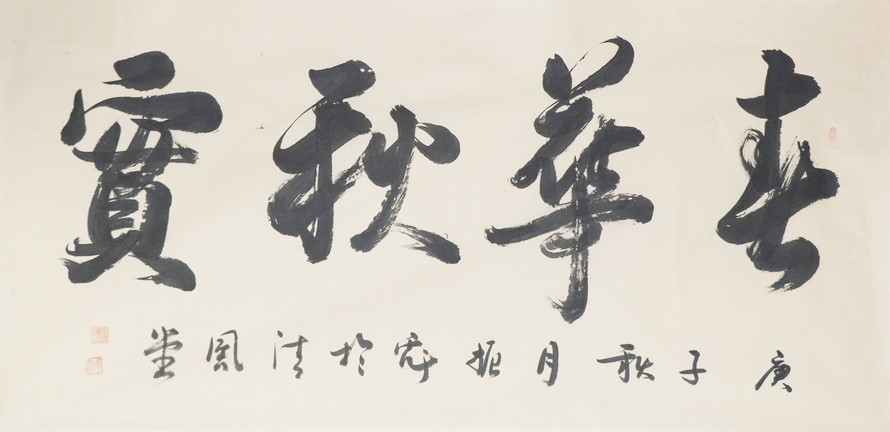 春華秋實
庚子秋月振 於清風堂